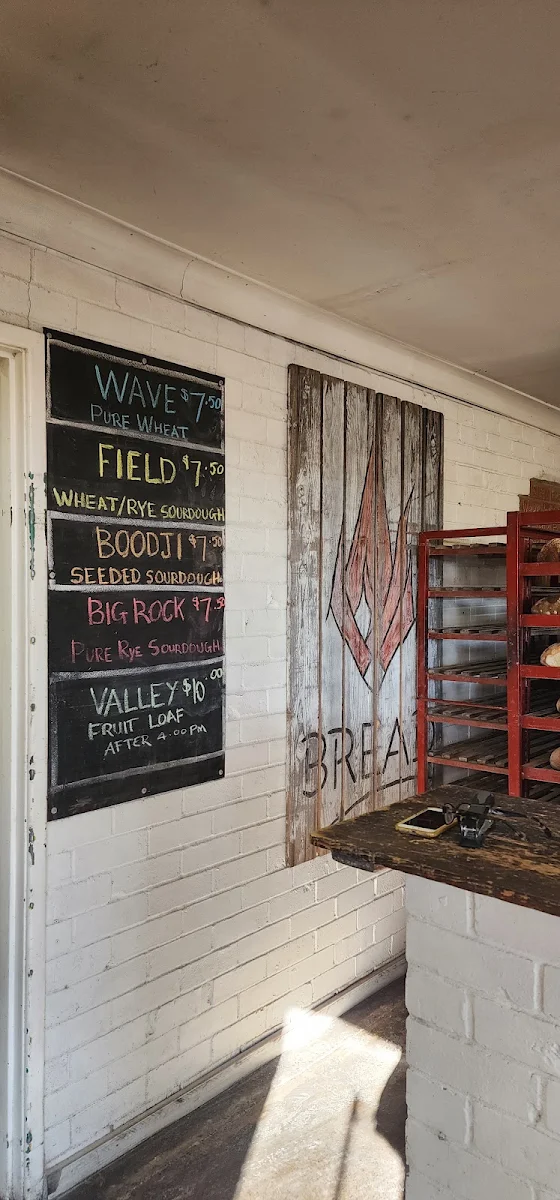 WAVE $7.50
PURE WHEAT
FIELD $7.50
WHEAT/RYE SOURDOUGH
BOODJI $7.50
SEEDED SOURDOUGH
BIG ROCK $7.5
PURE RYE SOURDOUGH
VALLEY $10.00
FRUIT LOAF
AFTER 4:00 PM
BREA